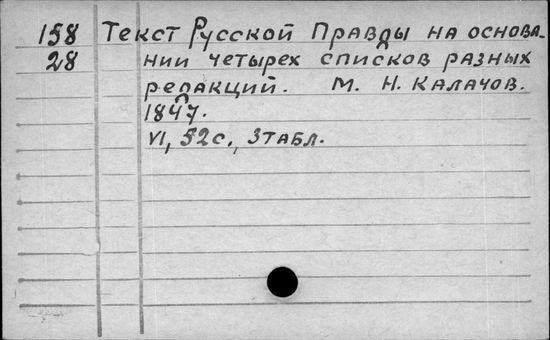 158 Текст Русской Правды на основа-
28 нии четырех списков разных
редакций. М. Н. Калачов.
1847.
VI, 52с., 3табл.